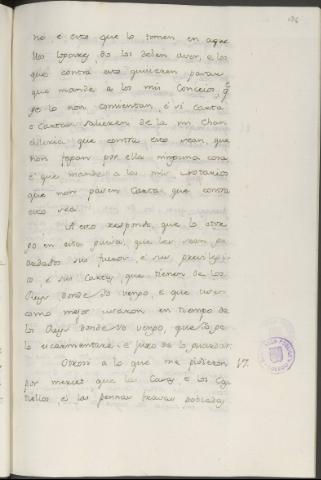 no é esto que lo tomen en aque
llos logares, do los deben aver, e los
que contra esto quisieren pasar
que mande a los mis Conceios, q̃
ge lo non consientan, é si Carta
o Cartas salieren de la mi Chan
cilleria que contra esto sean, que
non fagan por ella ninguna cosa,
é que mande a los mis Notarios
que non pasen Carta que contra
esto sea.
A esto respondo, que lo otor
go en esta guisa, que les sean gu
ardados sus fueros é sus previlegi
os é sus Cartas que tienen de los
Reyes donde Yo vengo, é que usen
como mejor usaron en tiempo de
los Reyes donde Yo vengo, que Yo ge
lo escarmentaré é fizo de lo guardar.
Otrosi a lo que me pidieron 17.
por merced que las Casas, é los Cas
tiellos, é las pennas bravas pobladas